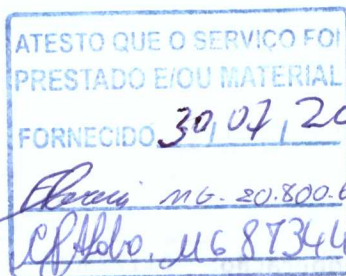 ATESTO QUE O SERVIÇO FOI
PRESTADO E/OU MATERIAL
FORNECIDO 30, 07, 20
MG-20.800.6
MG 87344